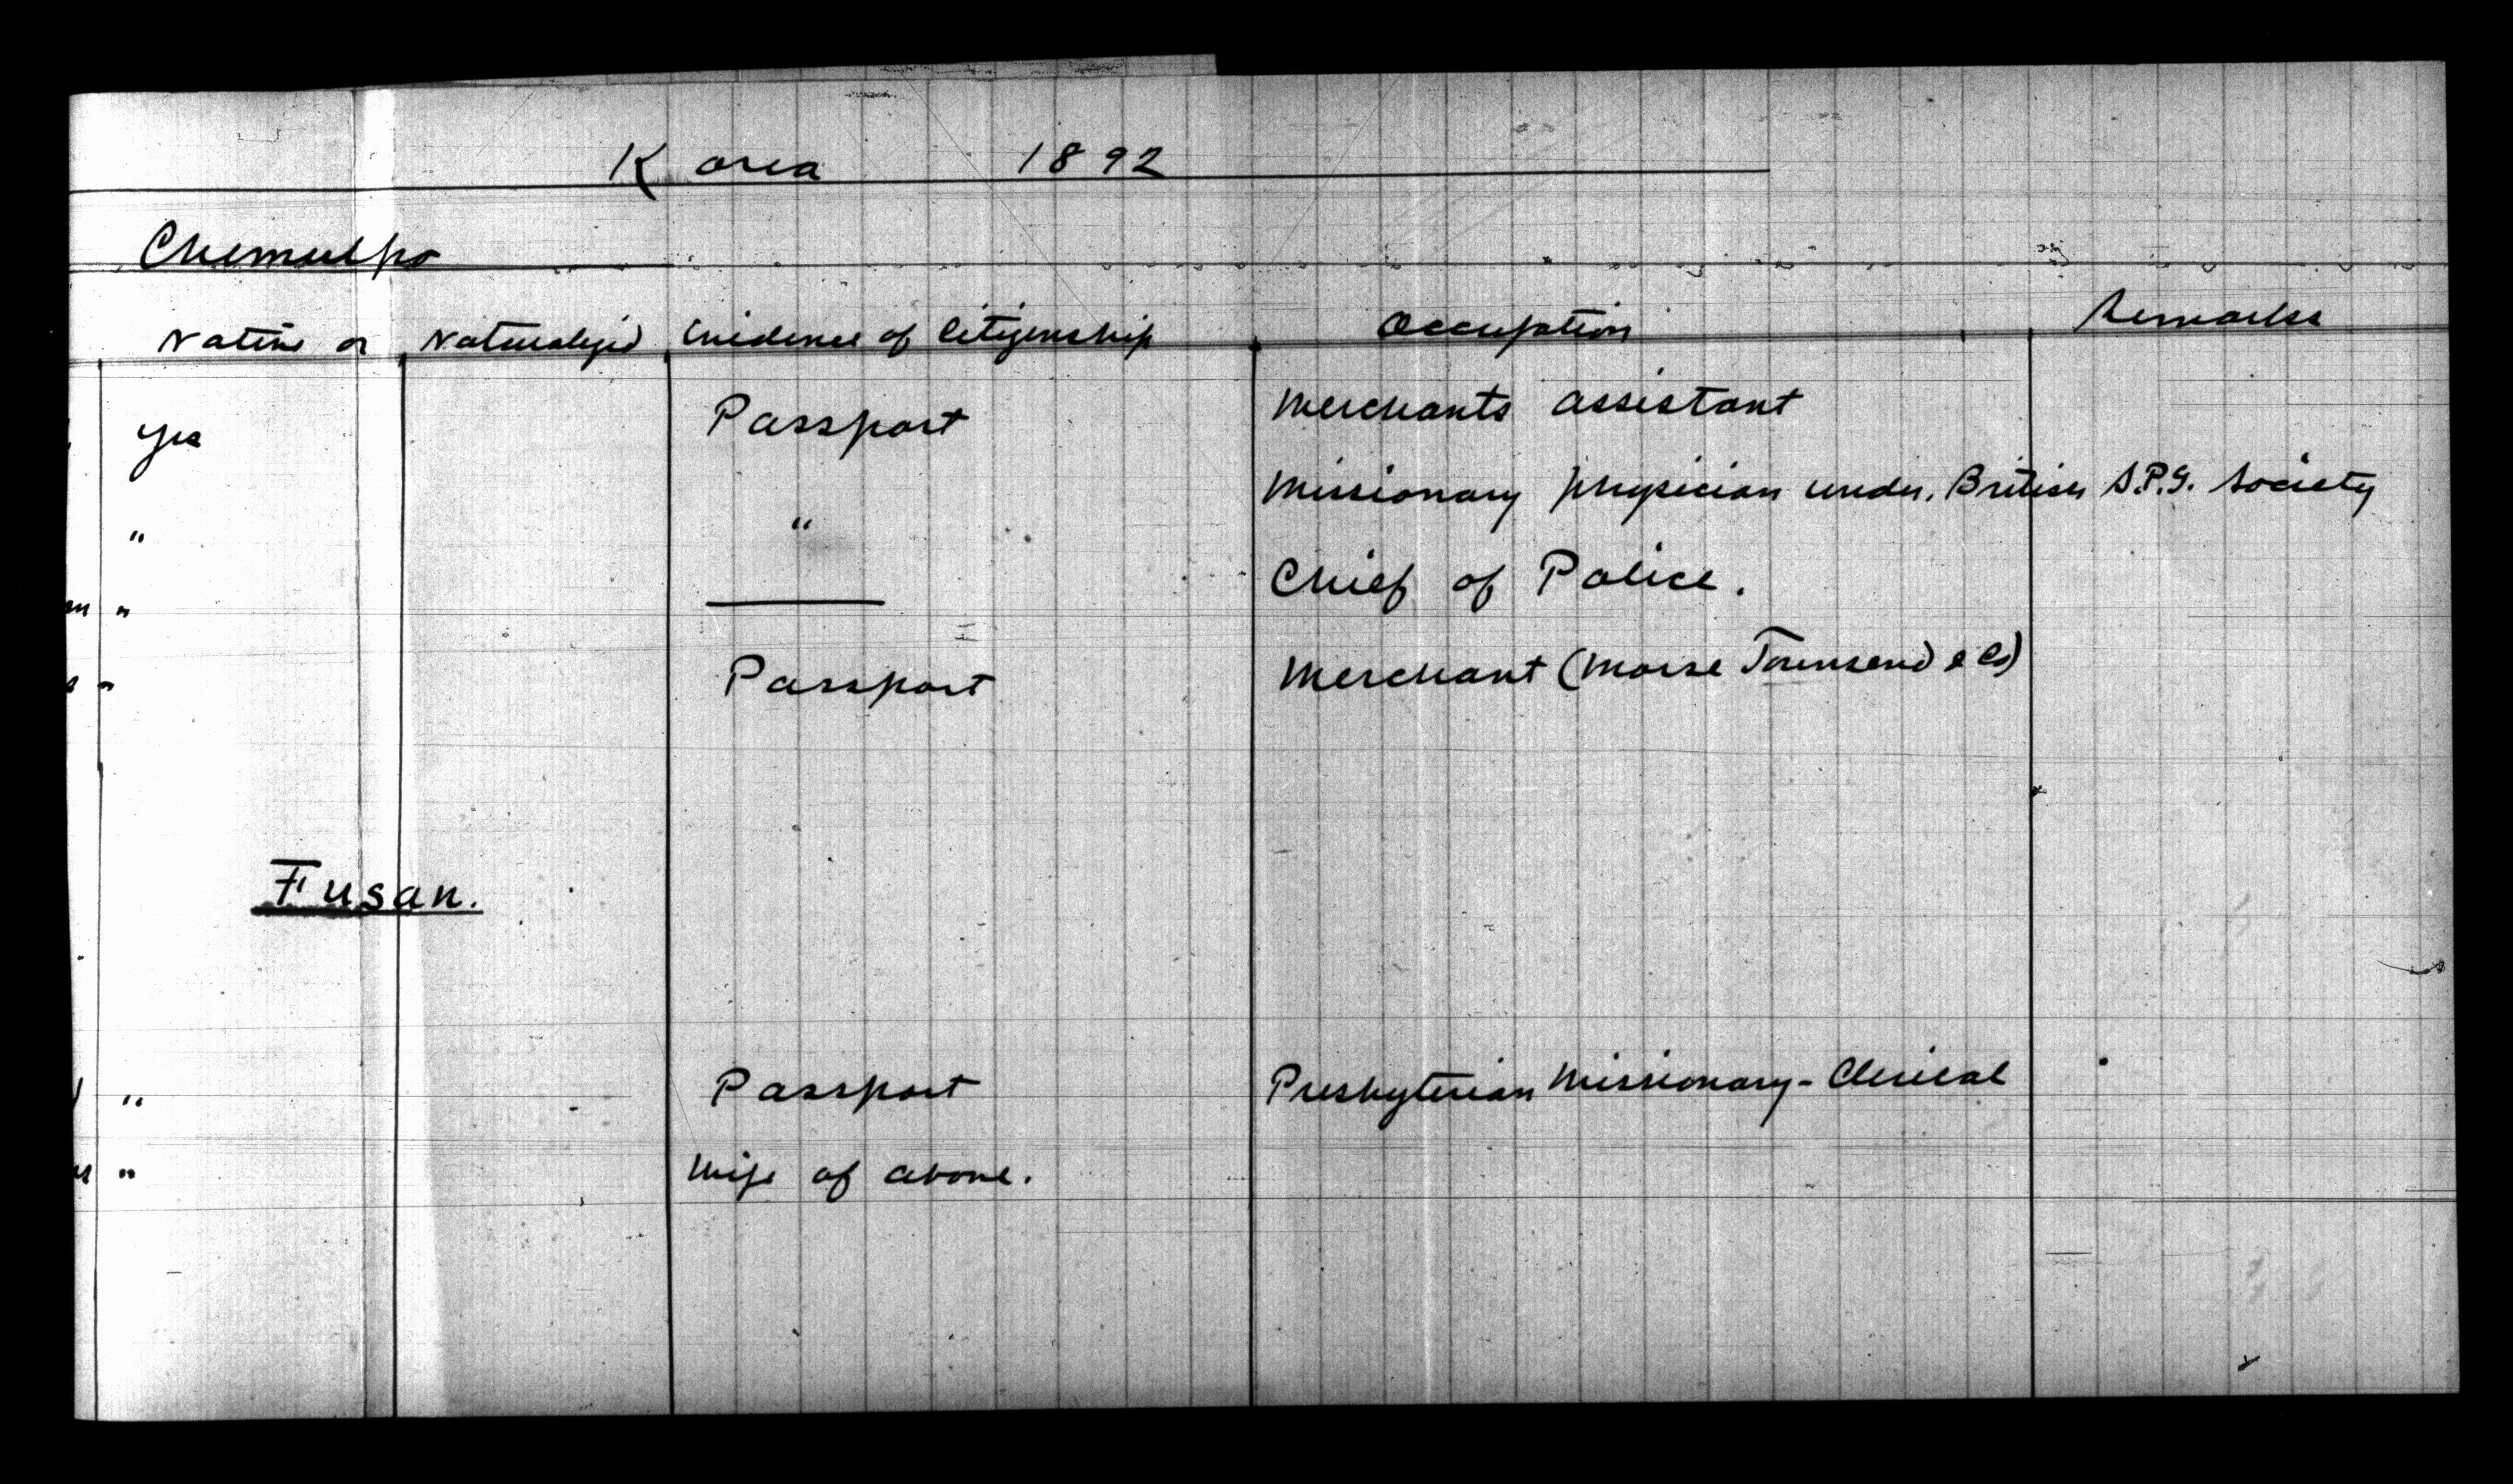 Korea 1892
Chemulpo
Native or Naturalized Evidence of Citizenship Occupation Remarks
Yes Passport Merchants assistant
" " Missionary physician under. British S.P.G. Society
" Chief of Police.
" Passport Merchant (Morse Townsend & Co)
Fusan.
" Passport Presbyterian Missionary - Clerical
" Wife of above.